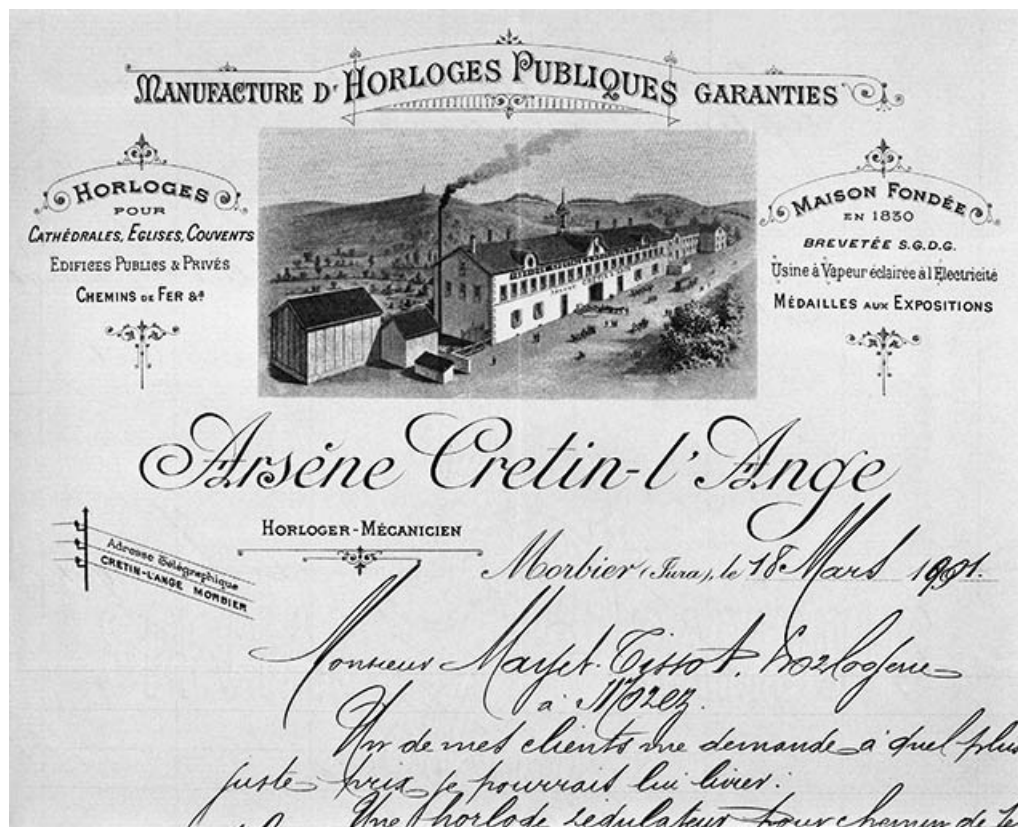 MANUFACTURE D'HORLOGES PUBLIQUES GARANTIES
HORLOGES
POUR
CATHÉDRALES, EGLISES, COUVENTS
EDIFICES PUBLICS & PRIVÉS
CHEMINS DE FER &a
MAISON FONDÉE
EN 1830
BREVETÉE S.G.D.G.
Usine à Vapeur éclairée à l'Electricité
MÉDAILLES AUX EXPOSITIONS
Arsène Cretin-l'Ange
HORLOGER-MÉCANICIEN
Adresse Télégraphique
CRETIN-L'ANGE MORBIER
Morbier (Jura), le 18 Mars 1901.
Monsieur Mayet-Tissot, horlogerie
à Morez.
Un de mes clients me demande à quel plus
juste prix je pourrais lui livrer:
Une horloge régulateur pour chemin de fe